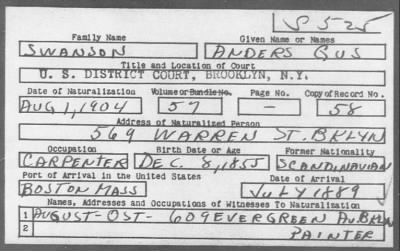 S 525
Family Name Given Name or Names
SWANSON ANDERS GUS
Title and Location of Court
U. S. DISTRICT COURT, BROOKLYN, N.Y.
Date of Naturalization Volume or Bundle No. Page No. Copy of Record No.
AUG 1, 1904 57 — 58
Address of Naturalized Person
569 WARREN ST. BKLYN
Occupation Birth Date or Age Former Nationality
CARPENTER DEC. 8, 1855 SCANDINAVIAN
Port of Arrival in the United States Date of Arrival
BOSTON MASS JULY 1889
Names, Addresses and Occupations of Witnesses To Naturalization
1 AUGUST-OST- 609 EVERGREEN AV. BKLYN
2 PAINTER